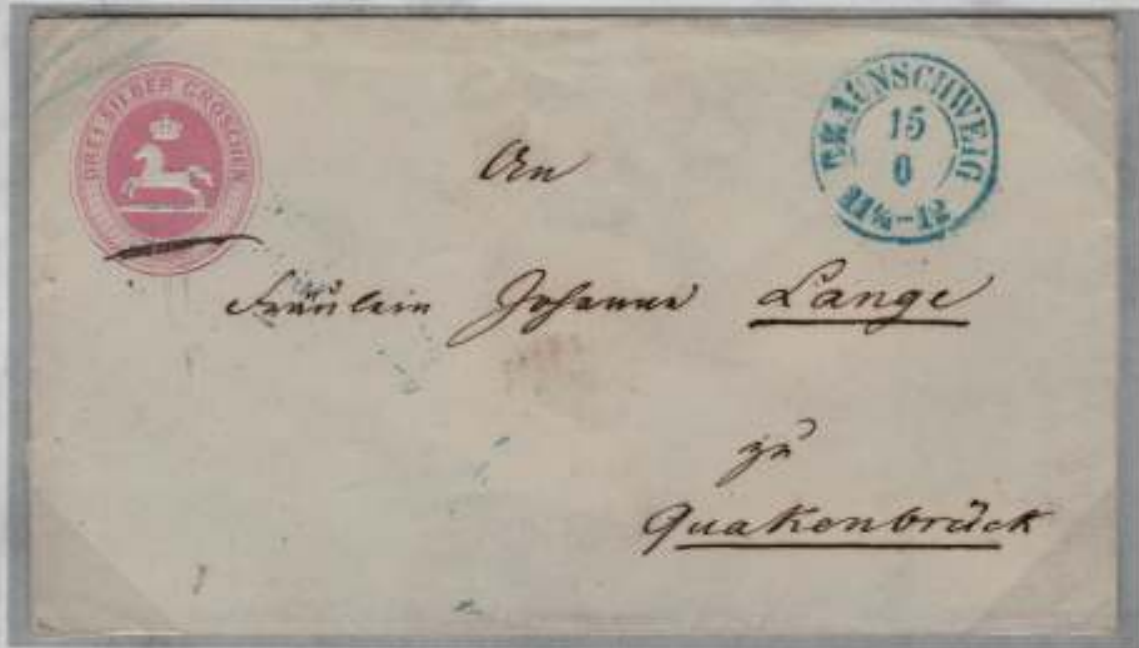 DREI SILBER GROSCHEN
BRAUNSCHWEIG
15
11¼-12
An
Fräulein Johanne Lange
zu
Quakenbrück